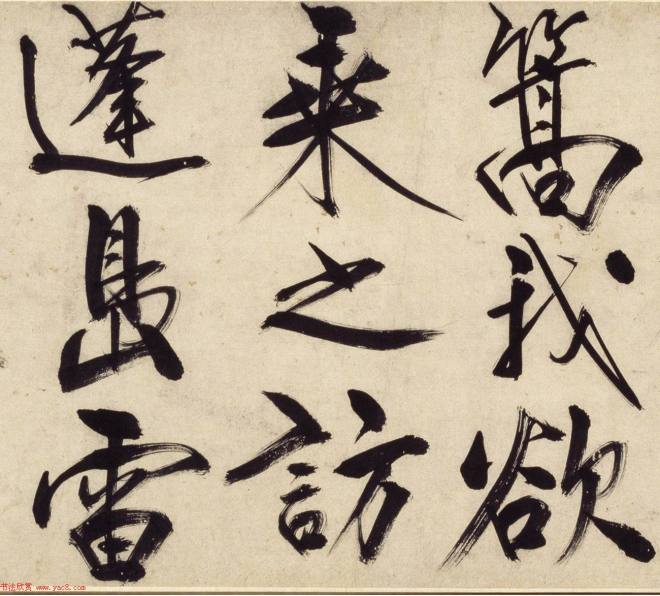 篙我欲
乘之訪
蓬島雷
书法欣赏 www.yac8.com